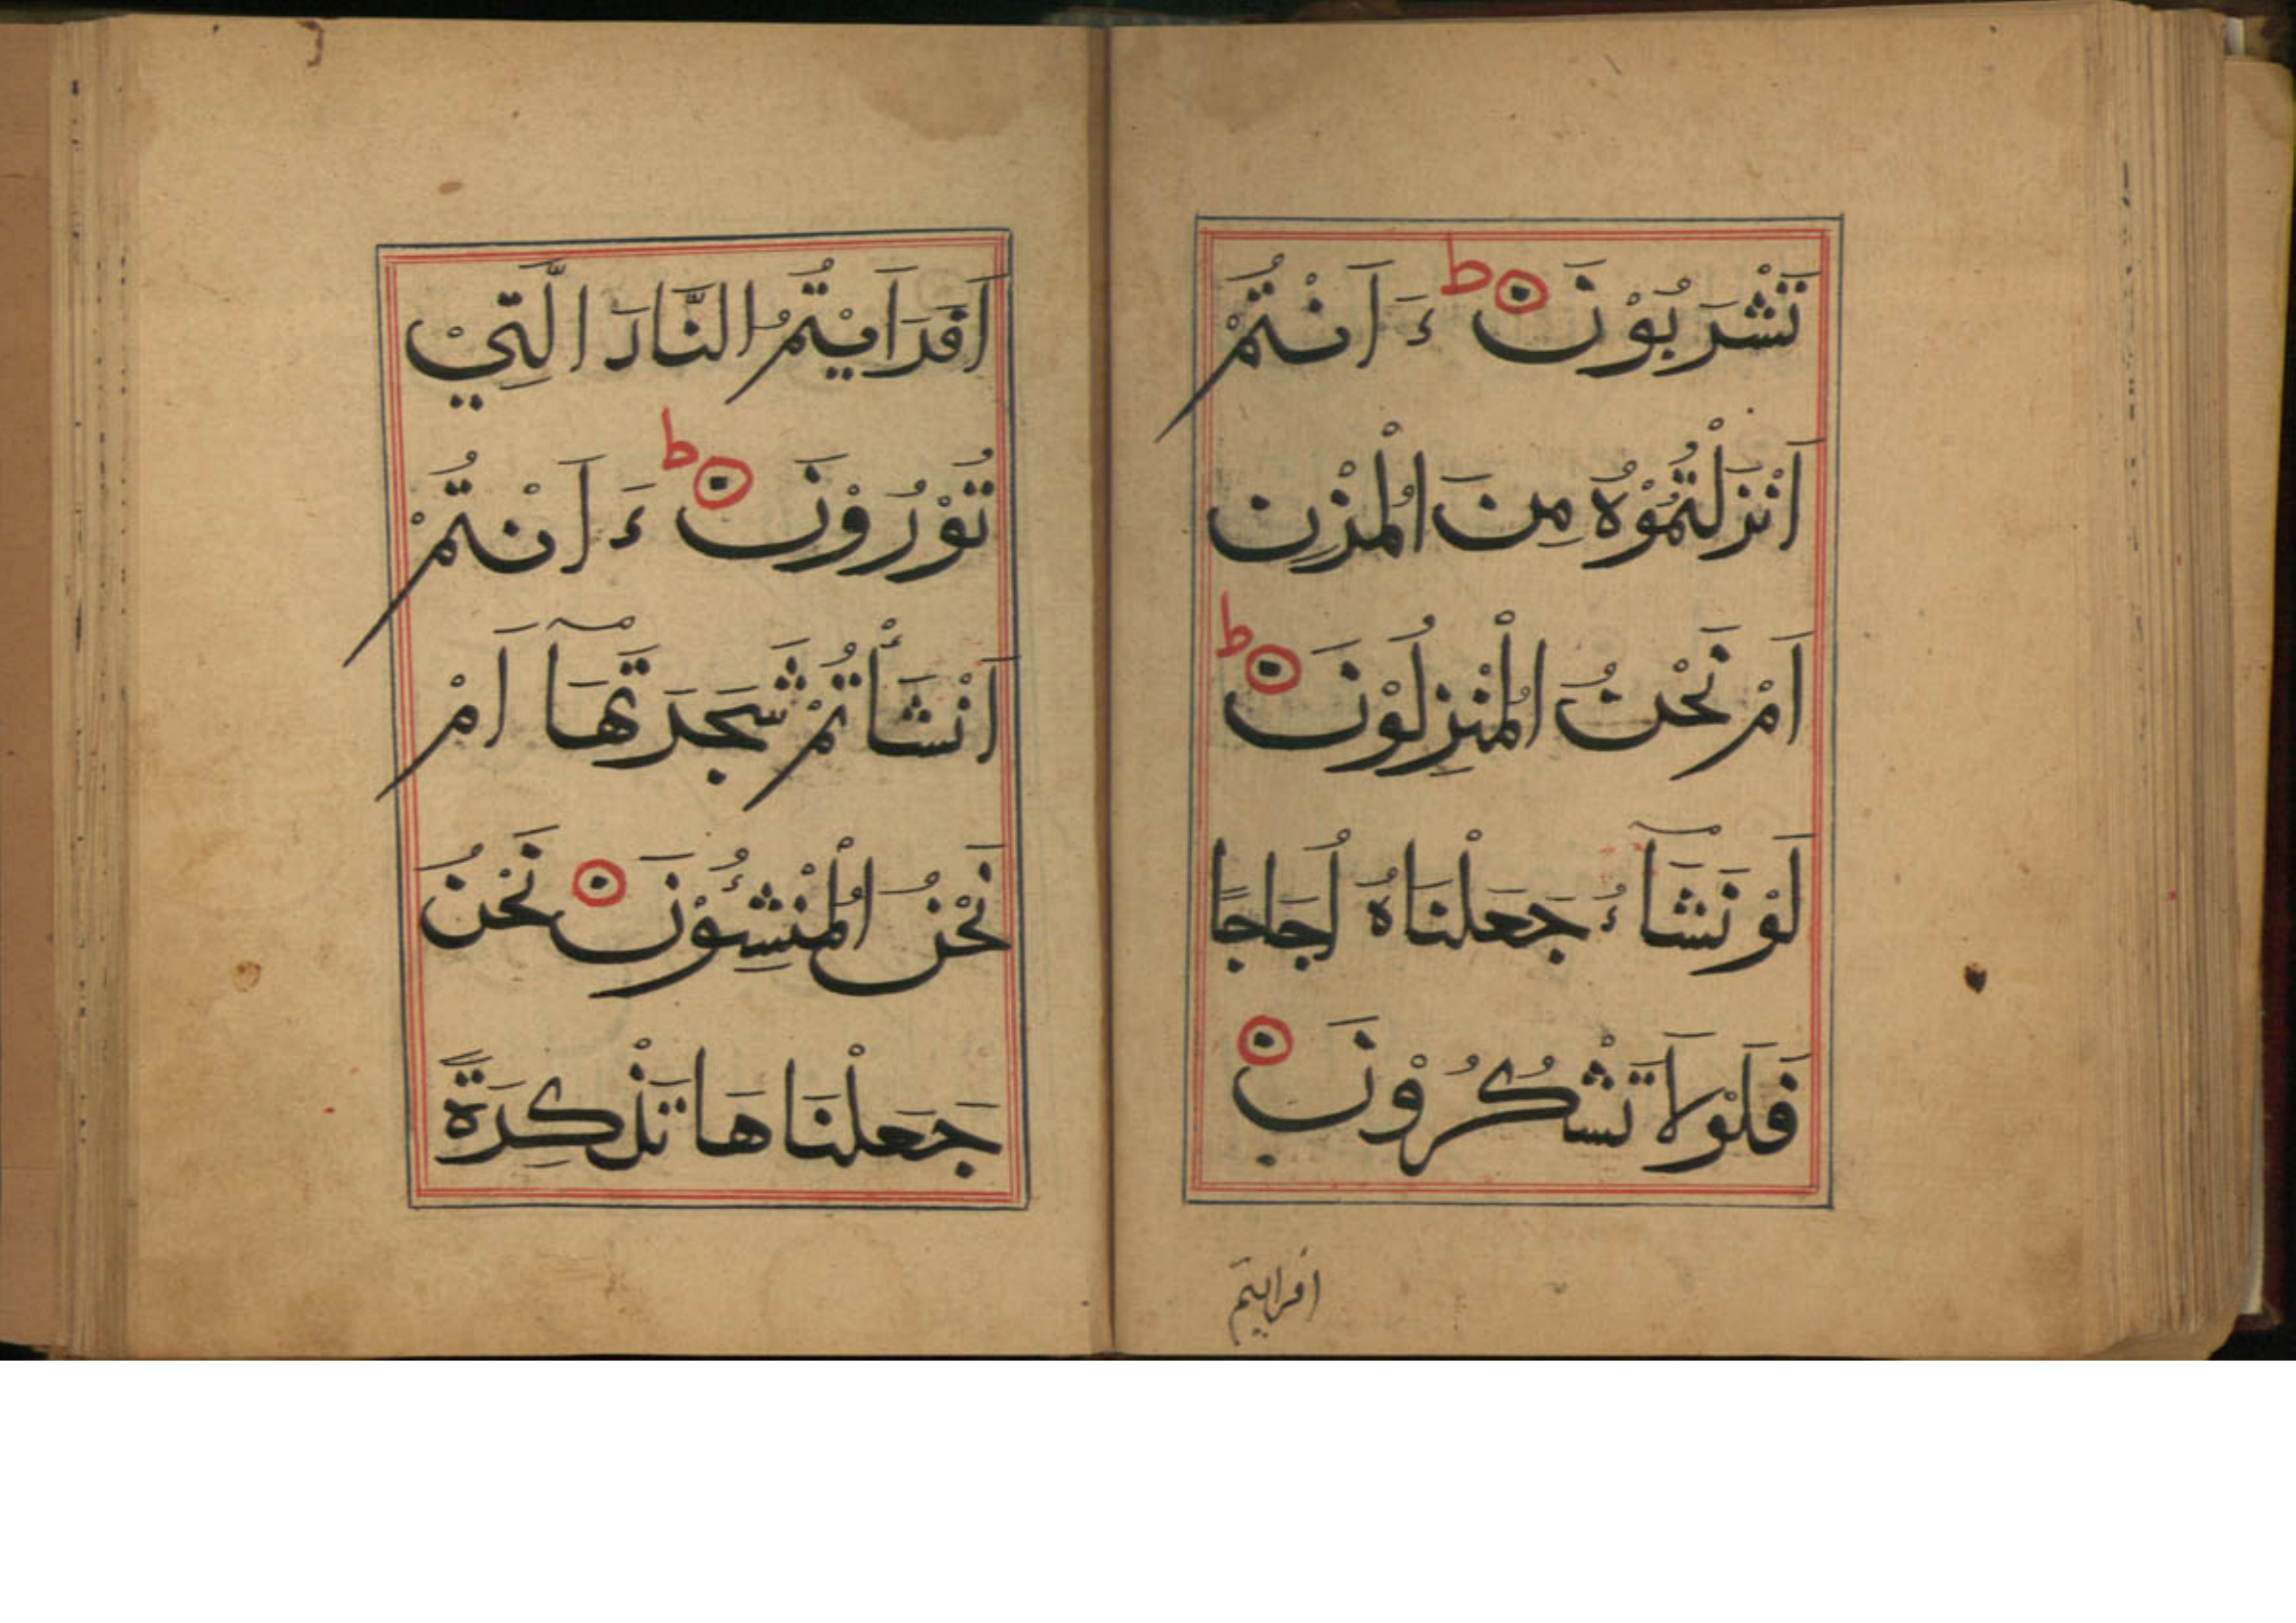 تَشْرَبُوْنَ ط ءَ اَنْتُمْ
اَنْزَلْتُمُوْهُ مِنَ الْمُزْنِ
اَمْ نَحْنُ الْمُنْزِلُوْنَ ط
لَوْ نَشَآءُ جَعَلْنَاهُ اُجَاجًا
فَلَوْلَا تَشْكُرُوْنَ
افرايتم
اَفَرَاَيْتُمُ النَّارَ الَّتِيْ
تُوْرُوْنَ ط ءَ اَنْتُمْ
اَنْشَأْتُمْ شَجَرَتَهَآ اَمْ
نَحْنُ الْمُنْشِئُوْنَ نَحْنُ
جَعَلْنَاهَا تَذْكِرَةً